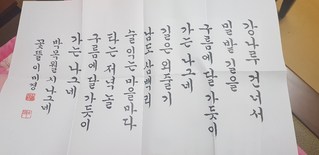 강나루 건너서
밀밭 길을
구름에 달 가듯이
가는 나그네
길은 외줄기
남도 삼백리
술 익는 마을마다
타는 저녁 놀
구름에 달 가듯이
가는 나그네
박목월 시 나그네